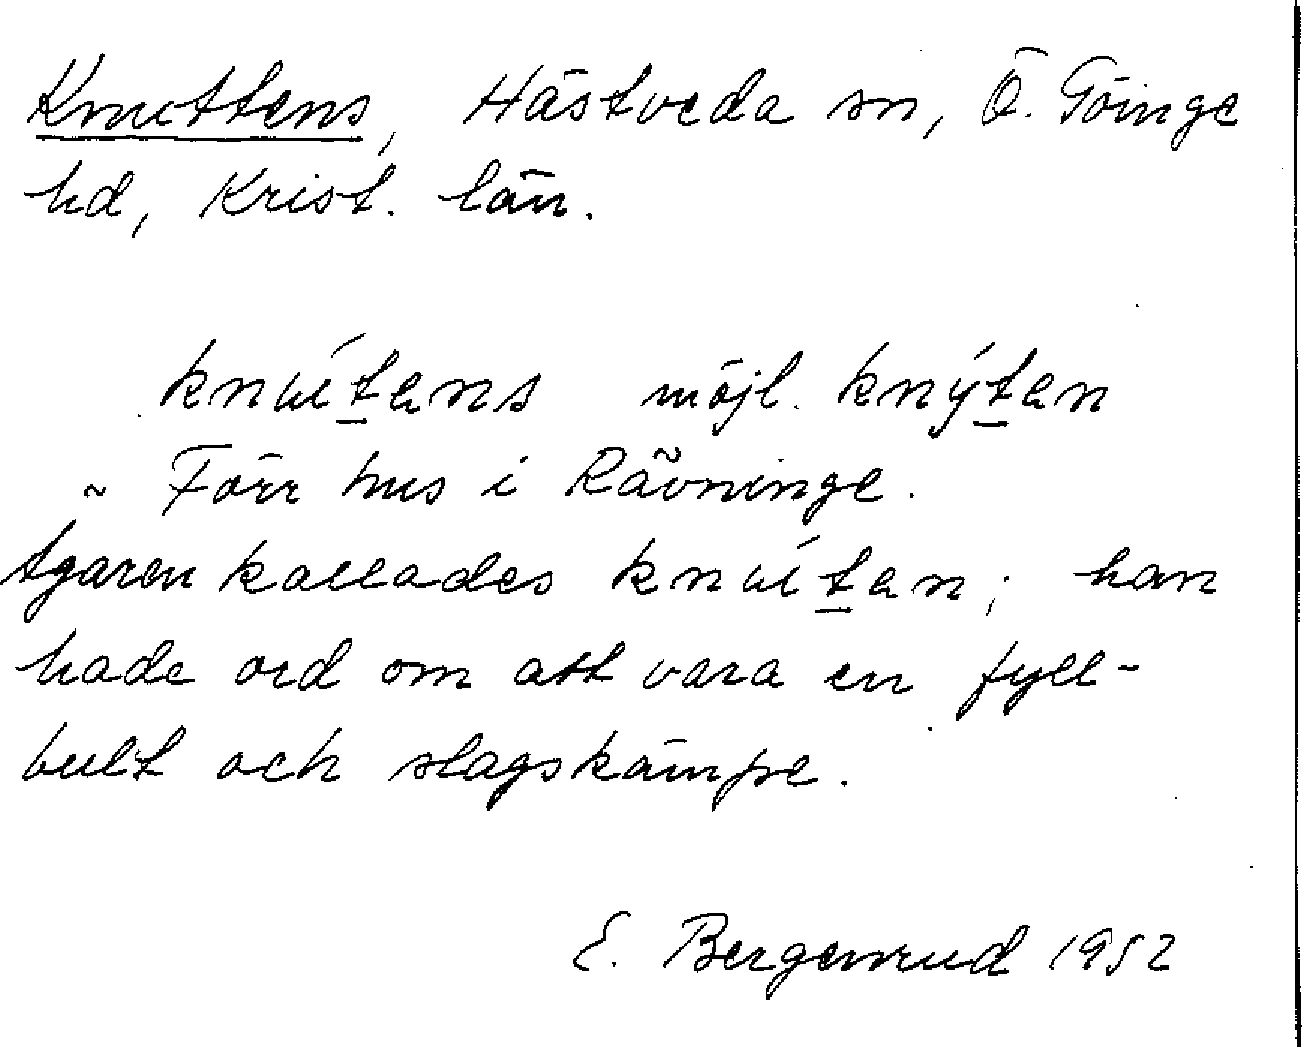 Knuttens, Hästveda sn, Ö. Göinge
hd, Krist. län.
knútens möjl. knýten
~ Förr hus i Rävninge.
Ägaren kallades knúten; han
hade ord om att vara en fyll-
bult och slagskämpe.
E. Bergenrud 1952